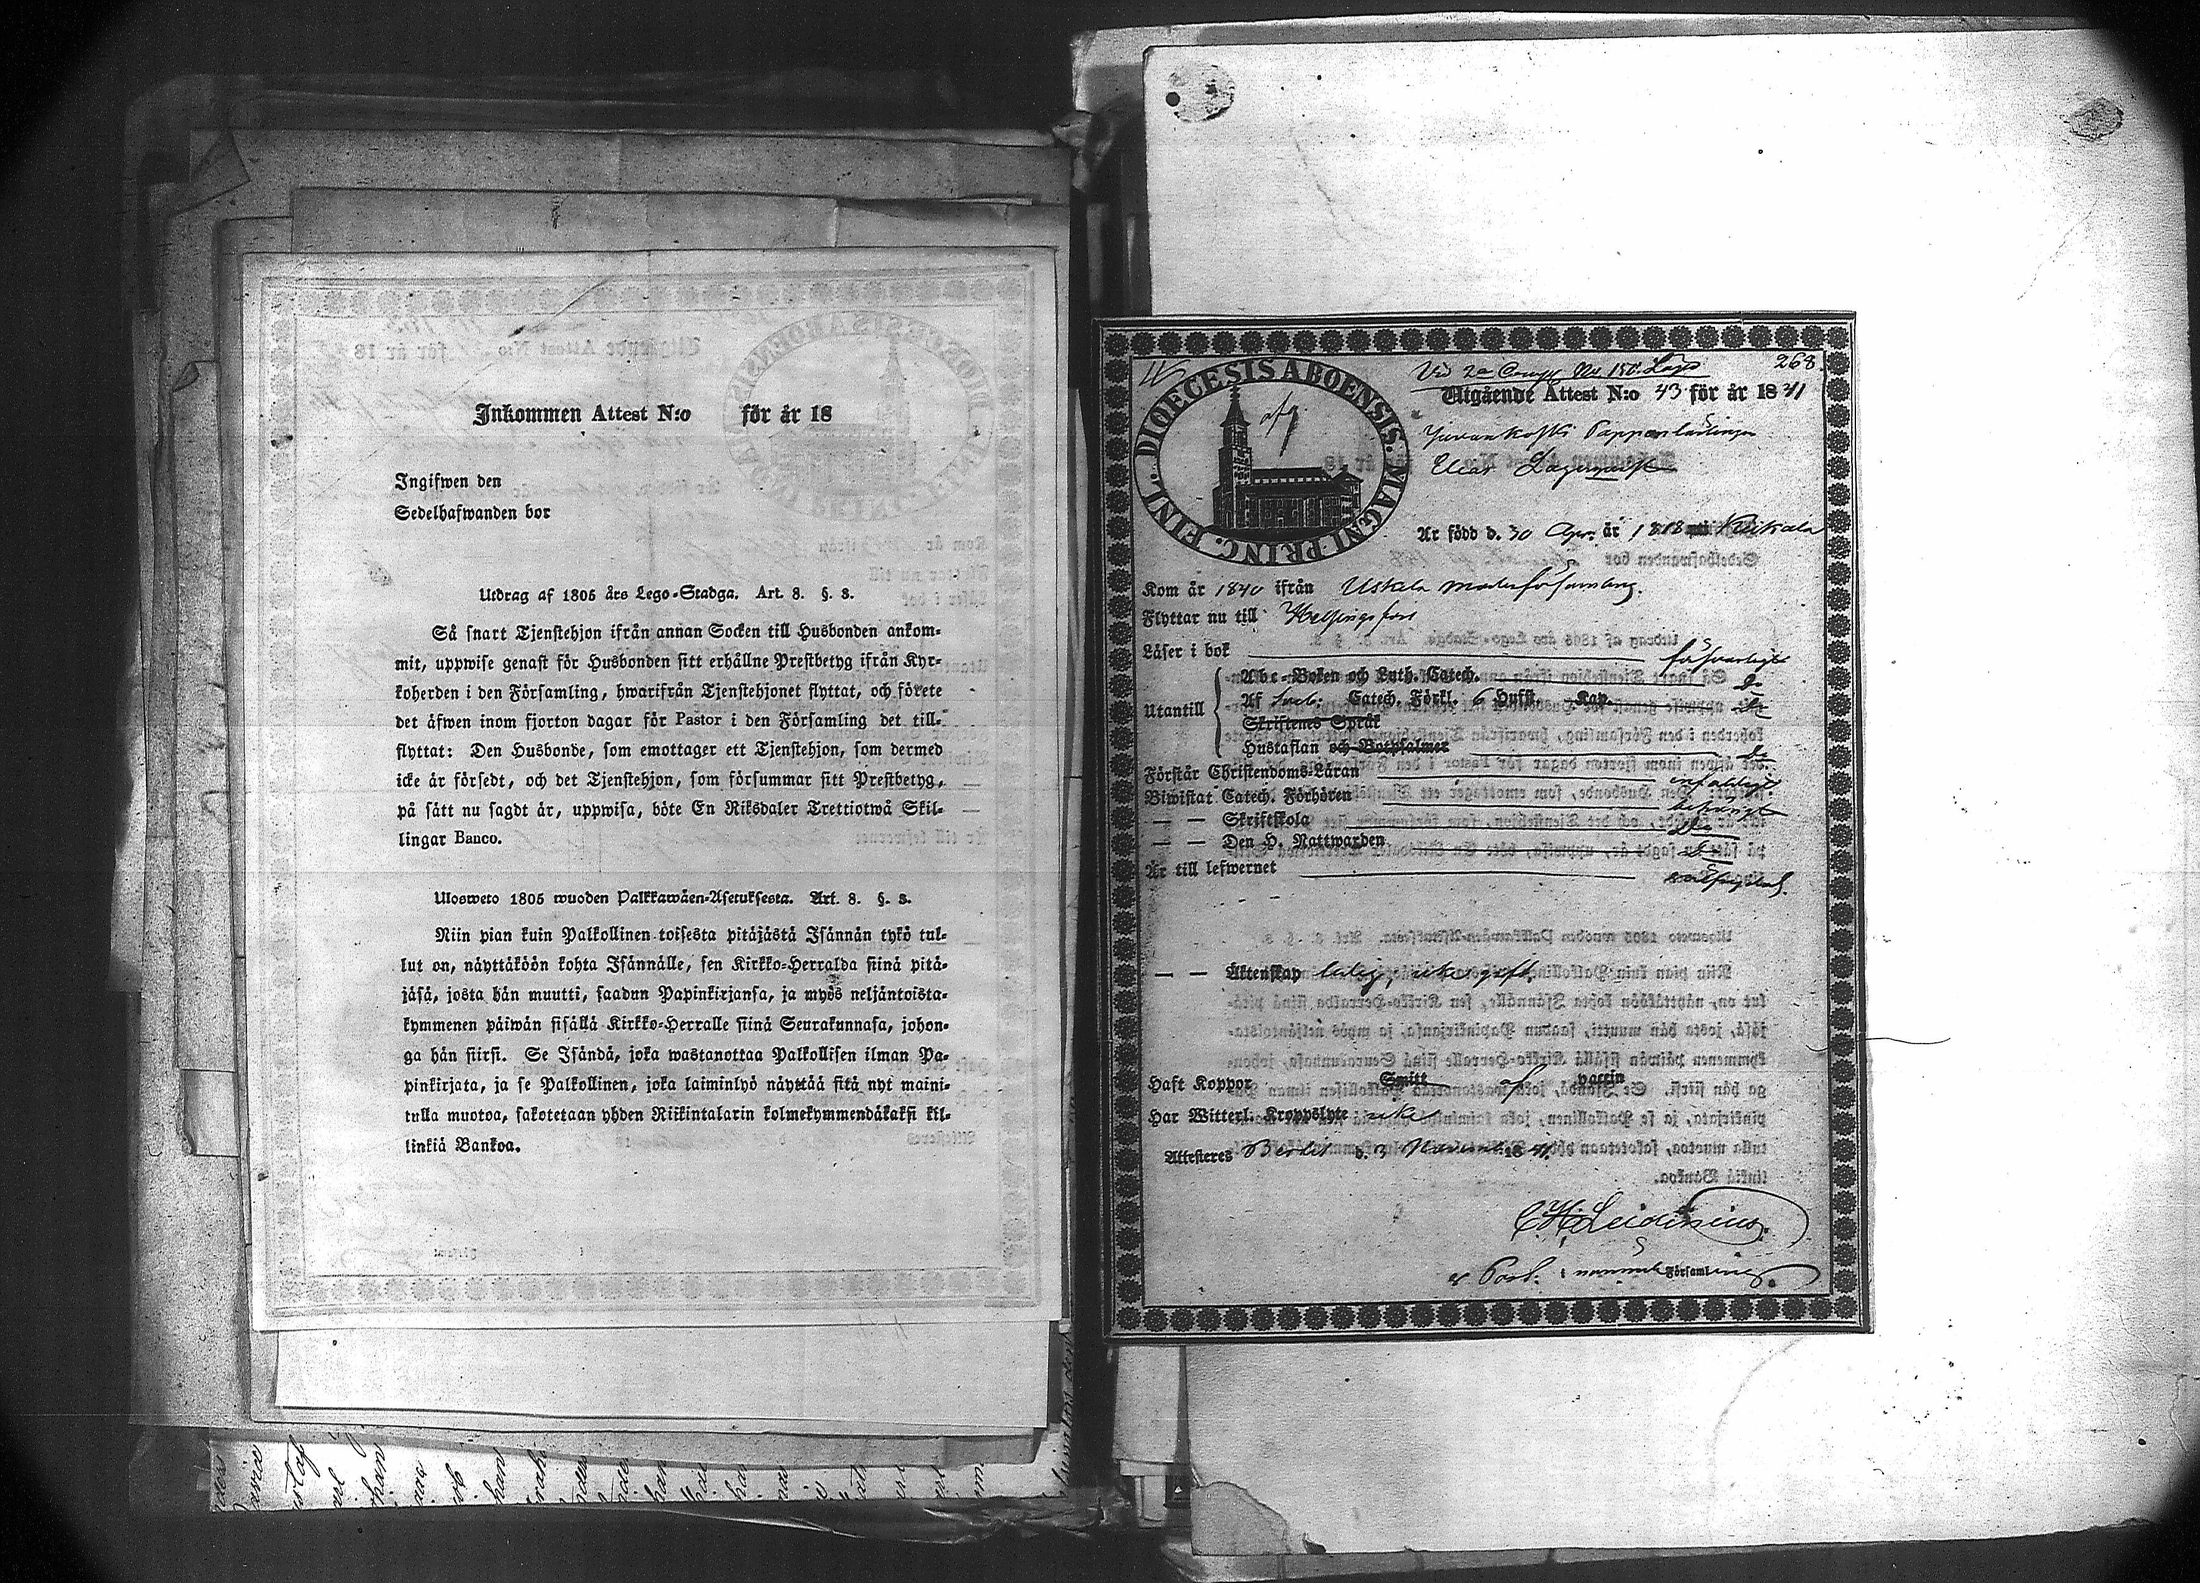 Inkommen Attest N:o för år 18
Ingifwen den
Sedelhafwanden bor
Utdrag af 1805 års Lego-Stadga. Art. 8. §. 8.
Så snart Tjenstehjon ifrån annan Socken till Husbonden ankom-
mit, uppwise genast för Husbonden sitt erhållne Prestbetyg ifrån Kyr-
koherden i den Församling, hwarifrån Tjenstehjonet flyttat, och förete
det äfwen inom fjorton dagar för Pastor i den Församling det till-
flyttat: Den Husbonde, som emottager ett Tjenstehjon, som dermed
icke är försedt, och det Tjenstehjon, som försummar sitt Prestbetyg,
på sätt nu sagdt är, uppwisa, böte En Riksdaler Trettiotwå Skil-
lingar Banco.
Ulosweto 1805 wuoden Palkkawäen-Asetuksesta. Art. 8. §. 8.
Niin pian kuin Palkollinen toisesta pitäjästä Isännän tykö tul-
lut on, näyttäköön kohta Isännälle, sen Kirkko-Herralda siinä pitä-
jäsä, josta hän muutti, saadun Papinkirjansa, ja myös neljäntoista-
kymmenen päiwän sisällä Kirkko-Herralle siinä Seurakunnasa, johon-
ga hän siirsi. Se Isändä, joka wastanottaa Palkollisen ilman Pa-
pinkirjata, ja se Palkollinen, joka laiminlyö näyttää sitä nyt maini-
tulla muotoa, sakotetaan yhden Riikintalarin kolmekymmendäkaksi kil-
linkiä Bankoa.
268.
DIOECESIS ABOENSIS. MAGNI PRINC. FINL.
Utgående Attest N:o 43 för år 1841
Elias Lagerqvist
Är född d. 30 Apr. år 1818 i Kiikala
Kom år 1840 ifrån Uskela moderförsamling.
Flyttar nu till Helsingfors
Läser i bok försvarligt
Utantill
Abc-Boken och Luth. Catech. Do
Af Catech. Förkl. 6 Hufst. Kap. Do
Skriftenes Språk
Hustaflan och Botpsalmer Do
Förstår Christendoms-Läran
Biwistat Catech. Förhören
— — Skriftskola Do
— — Den H. Nattwarden Do
Är till lefwernet
— — Äktenskap ledig, icke gift.
Haft Koppor Smitt af vaccin
Har Witterl. Kroppslyte icke
Attesteras d. 3 November 1841.
C. H. Leidenius
Församling